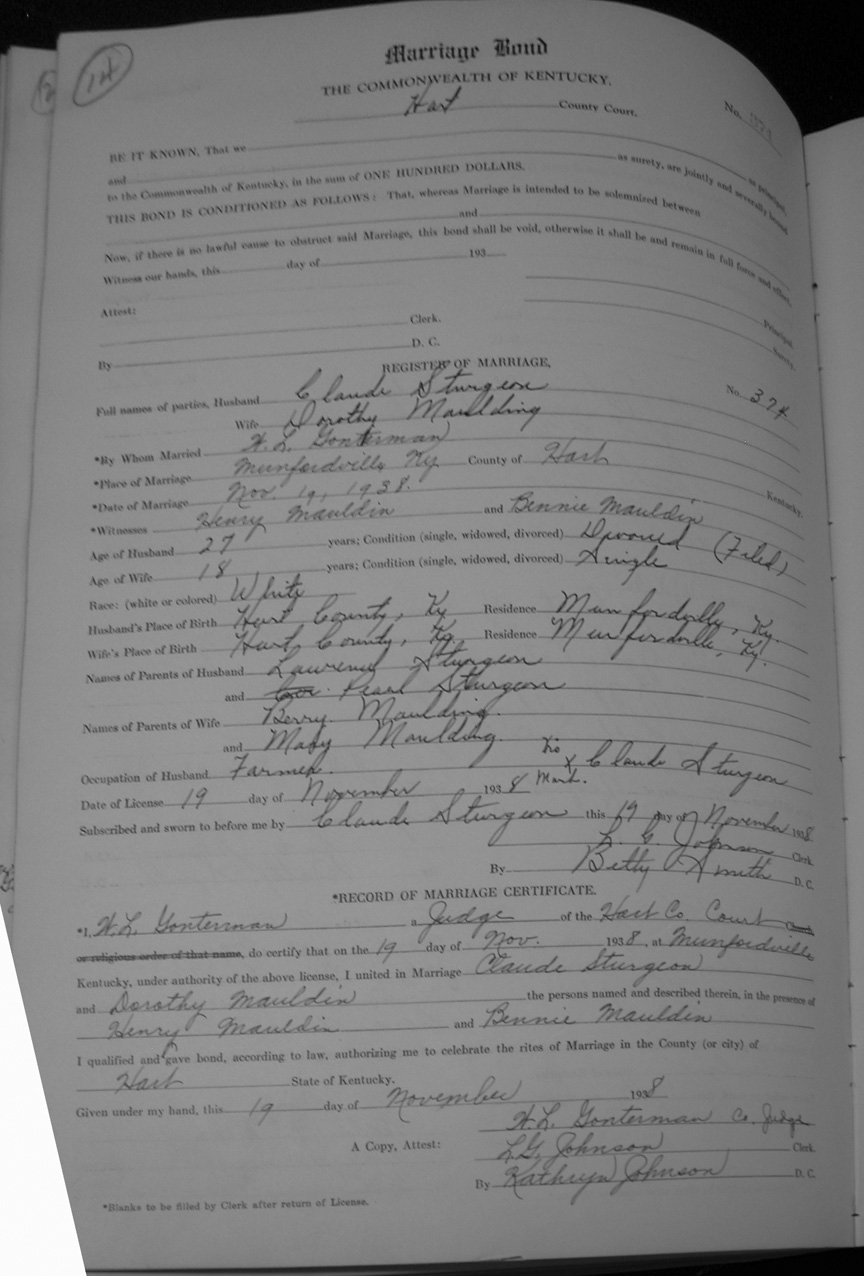 14
Marriage Bond
THE COMMONWEALTH OF KENTUCKY.
Hart County Court. No.
BE IT KNOWN, That we as principal,
and as surety, are jointly and severally bound
to the Commonwealth of Kentucky, in the sum of ONE HUNDRED DOLLARS.
THIS BOND IS CONDITIONED AS FOLLOWS: That, whereas Marriage is intended to be solemnized between
and
Now, if there is no lawful cause to obstruct said Marriage, this bond shall be void, otherwise it shall be and remain in full force and effect.
Witness our hands, this day of 193
Principal.
Attest:
Surety.
Clerk.
By D. C.
REGISTER OF MARRIAGE,
No. 374
Full names of parties, Husband Claude Sturgeon
Wife Dorothy Maulding
*By Whom Married H. L. Gonterman
*Place of Marriage Munfordville Ky County of Hart Kentucky.
*Date of Marriage Nov. 19, 1938.
*Witnesses Henry Mauldin and Bennie Mauldin
Age of Husband 27 years; Condition (single, widowed, divorced) Divorced (Filed)
Age of Wife 18 years; Condition (single, widowed, divorced) Single
Race: (white or colored) White
Husband's Place of Birth Hart County, Ky Residence Munfordville, Ky.
Wife's Place of Birth Hart County, Ky, Residence Munfordville, Ky.
Names of Parents of Husband Lawrence Sturgeon
and Pearl Sturgeon
Names of Parents of Wife Berry Maulding.
and Mary Maulding.
Occupation of Husband Farmer. his x Mark. Claude Sturgeon
Date of License 19 day of November 1938
Subscribed and sworn to before me by Claude Sturgeon this 19 day of November 1938
L. G. Johnson Clerk
By Betty Smith D. C.
*RECORD OF MARRIAGE CERTIFICATE.
*I, H. L. Gonterman a Judge of the Hart Co. Court Church
or religious order of that name, do certify that on the 19 day of Nov. 1938, at Munfordville
Kentucky, under authority of the above license, I united in Marriage Claude Sturgeon
and Dorothy Mauldin the persons named and described therein, in the presence of
Henry Mauldin and Bennie Mauldin
I qualified and gave bond, according to law, authorizing me to celebrate the rites of Marriage in the County (or city) of
Hart State of Kentucky.
Given under my hand, this 19 day of November 1938
H. L. Gonterman Co. Judge
A Copy, Attest: L G Johnson Clerk
By Kathryn Johnson D. C.
*Blanks to be filled by Clerk after return of License.